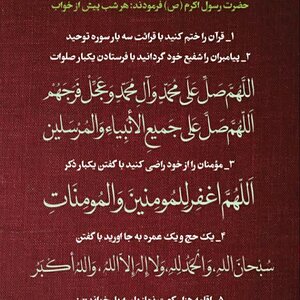 حضرت رسول اکرم (ص) فرمودند: هر شب پیش از خواب
۱_ قرآن را ختم کنید با قرائت سه بار سوره توحید
۲_ پیامبران را شفیع خود گردانید با فرستادن یکبار صلوات
اللّهُمَّ صَلِّ عَلی مُحَمَّدٍ وَآلِ مُحَمَّدٍ وَعَجِّل فَرَجَهُم
اللّهُمَّ صَلِّ عَلی جَمیعِ الأنبیاءِ وَالمُرسَلین
۳_ مؤمنان را از خود راضی کنید با گفتن یکبار ذکر
اَللّهُمَّ اغفِر لِلمُومِنینَ وَالمُومِنات
۴_ یک حج و یک عمره به جا آورید با گفتن
سُبحانَ اللهِ وَالحَمدُ للهِ وَلا إِلهَ إلاَّ اللهُ وَاللهُ أَکبَر